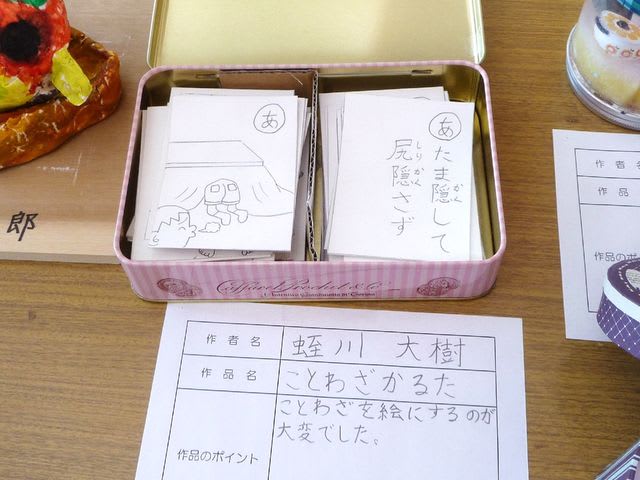 あ
あ
たま隠して
かく
尻隠さず
しり かく
郎
作者名
蛭川 大樹
作品名
ことわざかるた
作品のポイント
ことわざを絵にするのが
大変でした。
作者名
作品
作品のポ